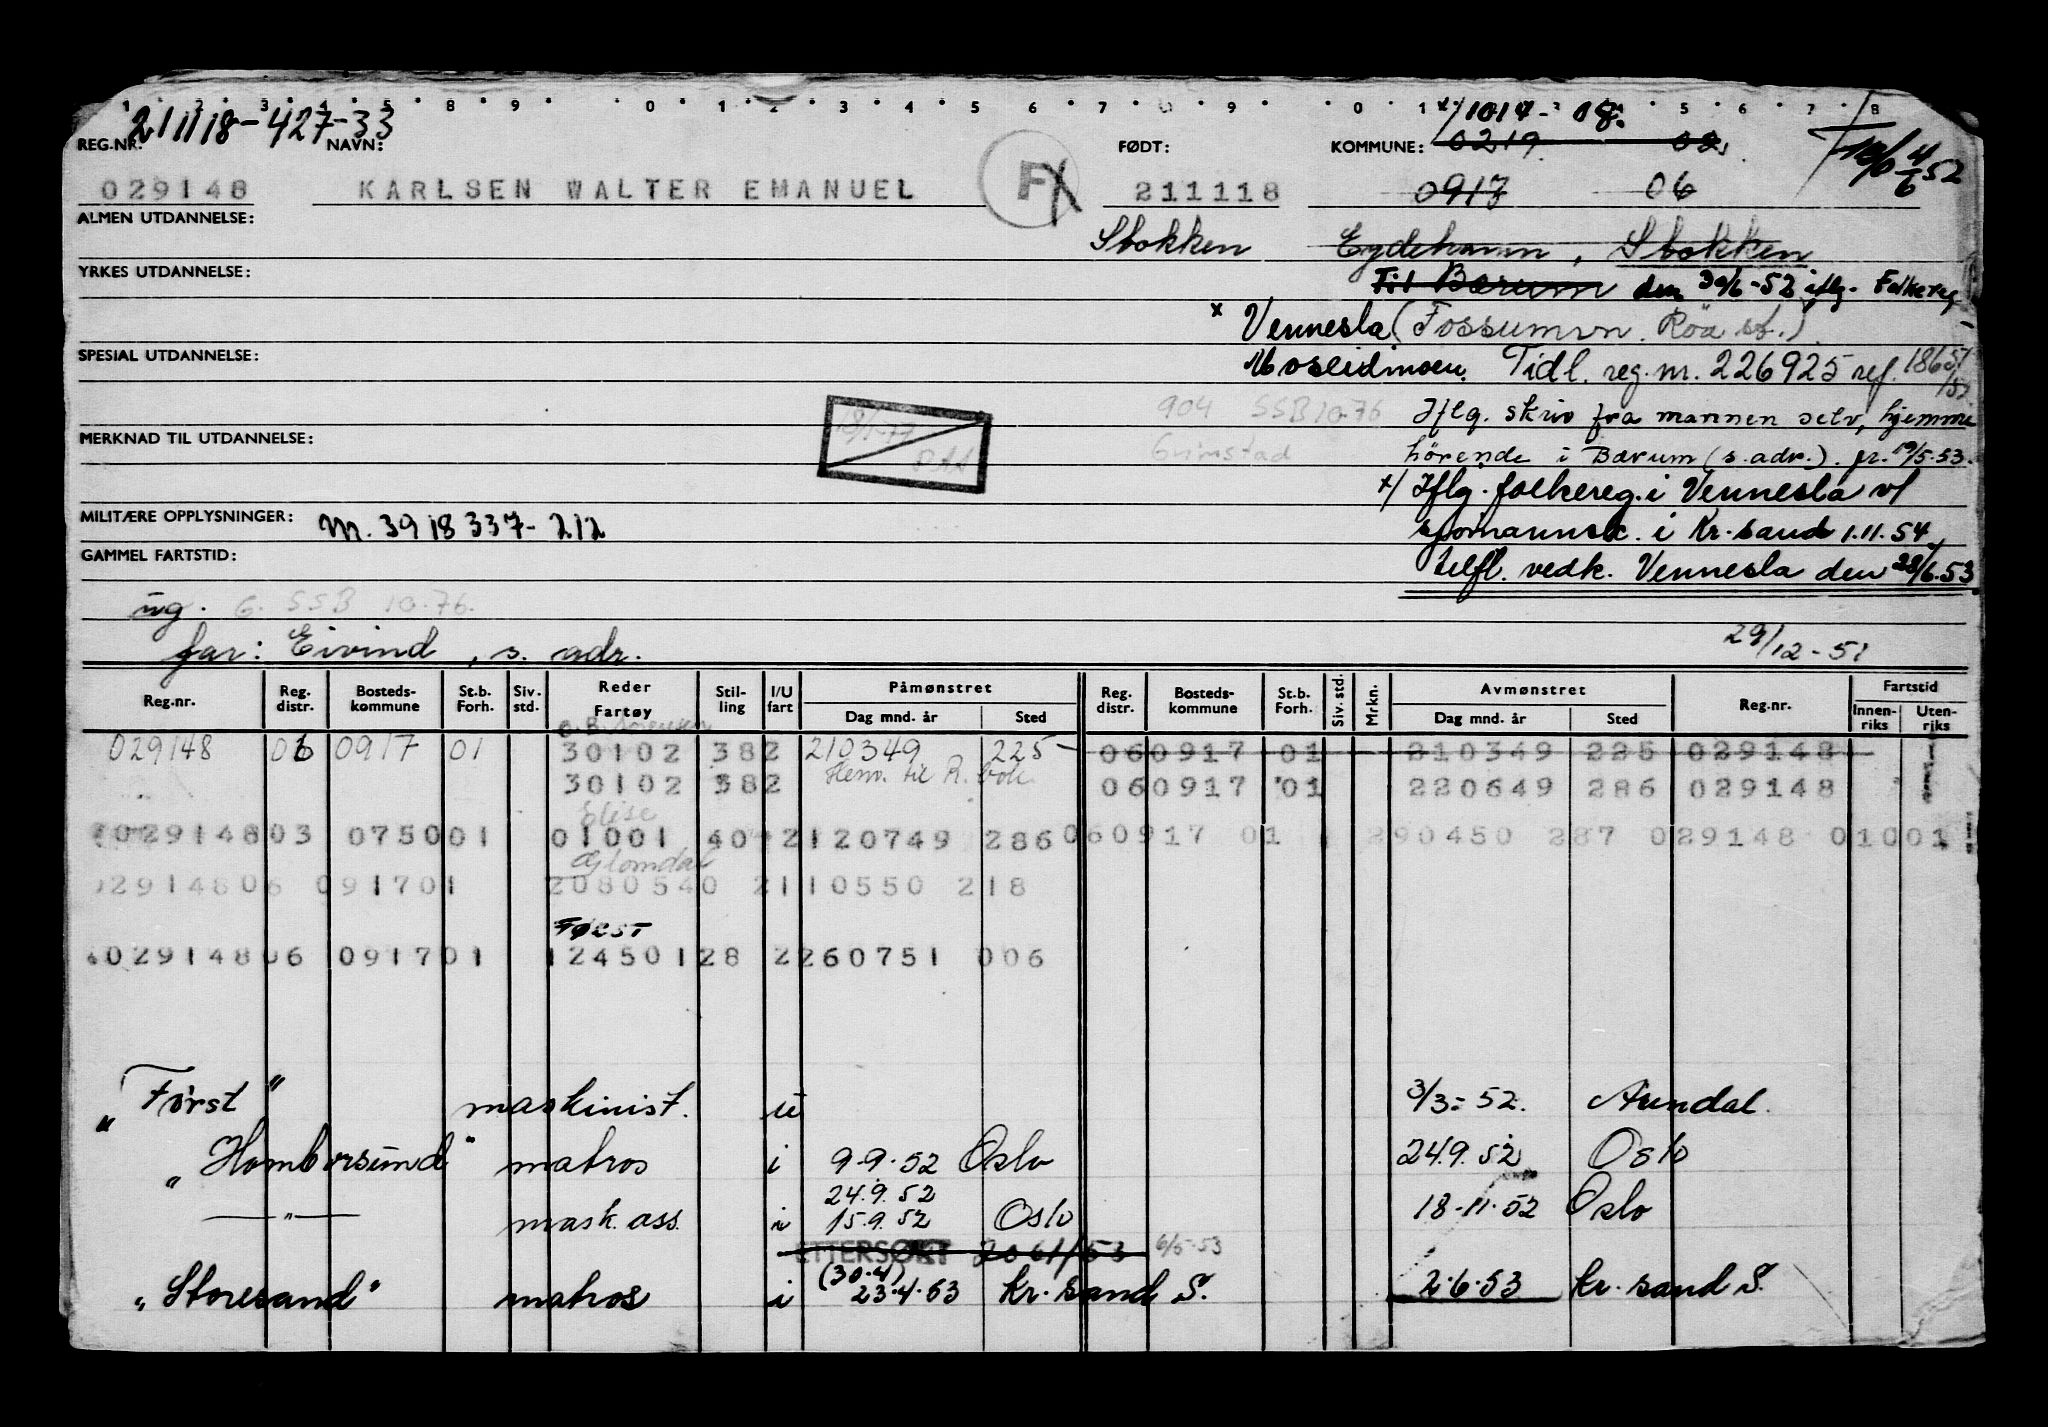 1 2 3 4 5 8 9 0 1 2 3 4 5 6 7 8 9 0 1 5 6 7 8
211118-427-33
x/ 1014- 08.
REG.NR. NAVN: FØDT: KOMMUNE: 0219. 02.
029148 KARLSEN WALTER EMANUEL F 211118 0917 06
4/6 52
ALMEN UTDANNELSE:
Stokken Eydehavn, Stokken
YRKES UTDANNELSE:
Til Bærum den 30/6-52 iflg. Folkereg
x Vennesla (Fossumvn. Röa st.)
SPESIAL UTDANNELSE:
Moseidmoen. Tidl. reg. nr. 226925 ref.
904 SSB 10-76
Grimstad
18/1-77
Iflg. skriv fra mannen selv, hjemme
MERKNAD TIL UTDANNELSE:
hörende i Bærum (s. adr.). pr. 19/5-53.
x/ Iflg. folkereg. i Vennesla v/
MILITÆRE OPPLYSNINGER: M. 3918337-212
sjömannsk. i Kr.sand 1.11.54
GAMMEL FARTSTID:
telfl. vedk. Vennesla den 28/6.53
ug. G. SSB 10-76.
far: Eivind, s. adr.
29/12-51
Reg.nr. Reg. distr. Bosteds-kommune St.b. Forh. Siv. std. Reder Fartøy Stil-ling I/U fart Påmønstret Dag mnd. år Sted Reg. distr. Bosteds-kommune St.b. Forh. Siv. std. Mrkn. Avmønstret Dag mnd. år Sted Reg.nr. Fartstid Innen-riks Uten-riks
029148 06 0917 01 30102 382 210349 225 - 060917 01 210349 225 029148
Henv. til R. bok
30102 382 060917 01 220649 286 029148
Elise
029148 03 0750 01 01001 40 2 120749 286 060917 01 290450 287 029148 01001
Glomdal
029148 06 0917 01 20805 40 2 110550 218
FØRST
029148 06 0917 01 12450 128 2 260751 006
"Först" maskinist. u 3/3-52. Arendal.
"Homborsund" matros i 9-9-52 Oslo 24.9.52 Oslo
24.9.52
—"— mask. ass. i 15.9.52 Oslo 18-11-52 Oslo
ETTERSØKT 2061/53 6/5-53
(30.4)
"Storesand" matros i 23.4.53 Kr.sand S. 2.6.53 Kr.sand S.